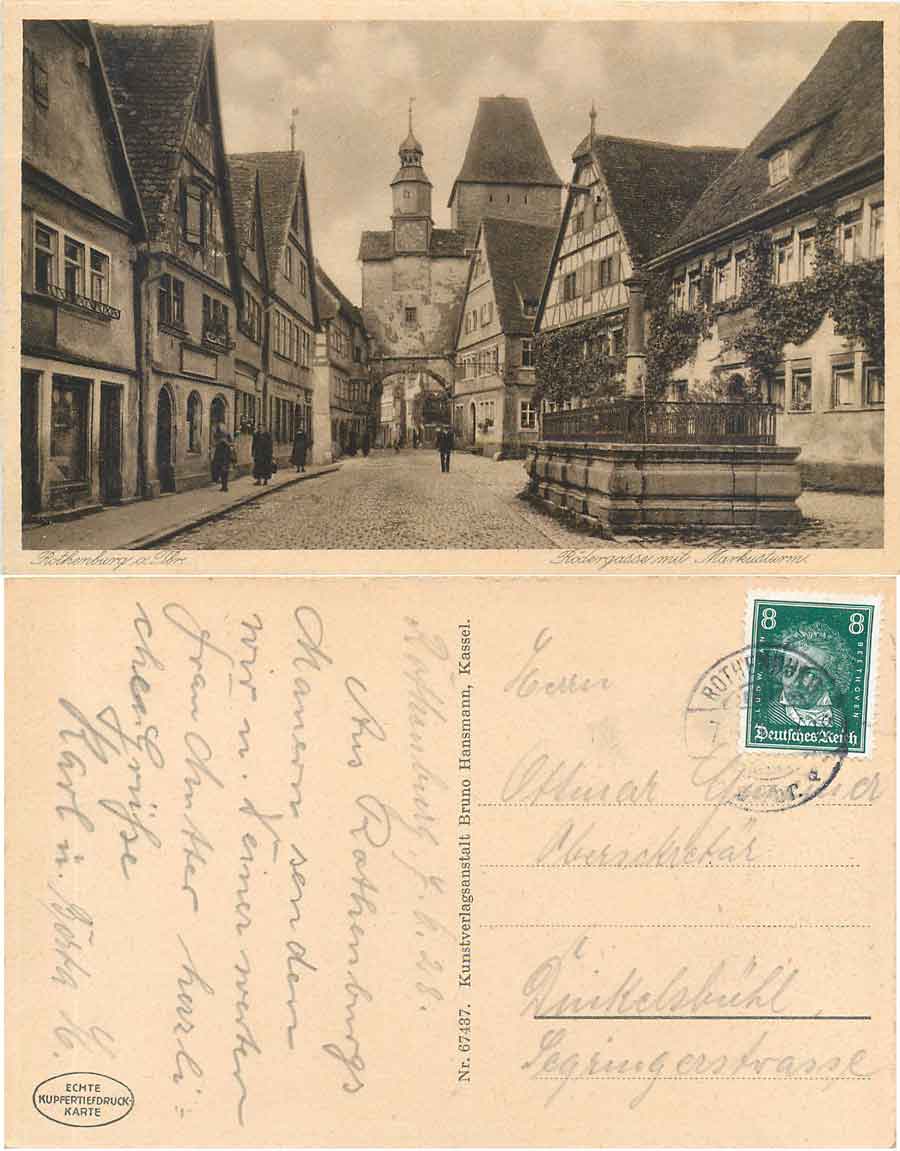 Rothenburg a. Tbr.
Rödergasse mit Markusturm.
Rothenburg, 7. 6. 28.
Aus Rothenburgs
Mauern senden
wir u. Deiner werten
Frau Mutter herzli-
chen Grüße
Karl u. H.
ECHTE
KUPFERTIEFDRUCK-
KARTE
Nr. 67437. Kunstverlagsanstalt Bruno Hansmann, Kassel.
8 8
LUDW. VAN BEETHOVEN
Deutsches Reich
ROTHENBURG
Herrn
Ottmar
Obersekretär
Dinkelsbühl
Segringerstrasse